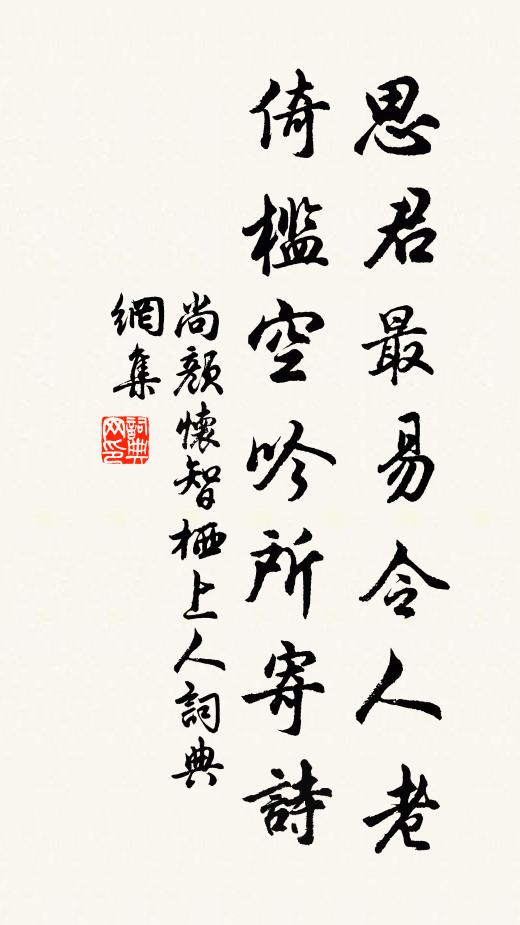 思君最易令人老
倚檻空吟所寄詩
尚顏懷智栖上人詞典
網集
詞典
网印